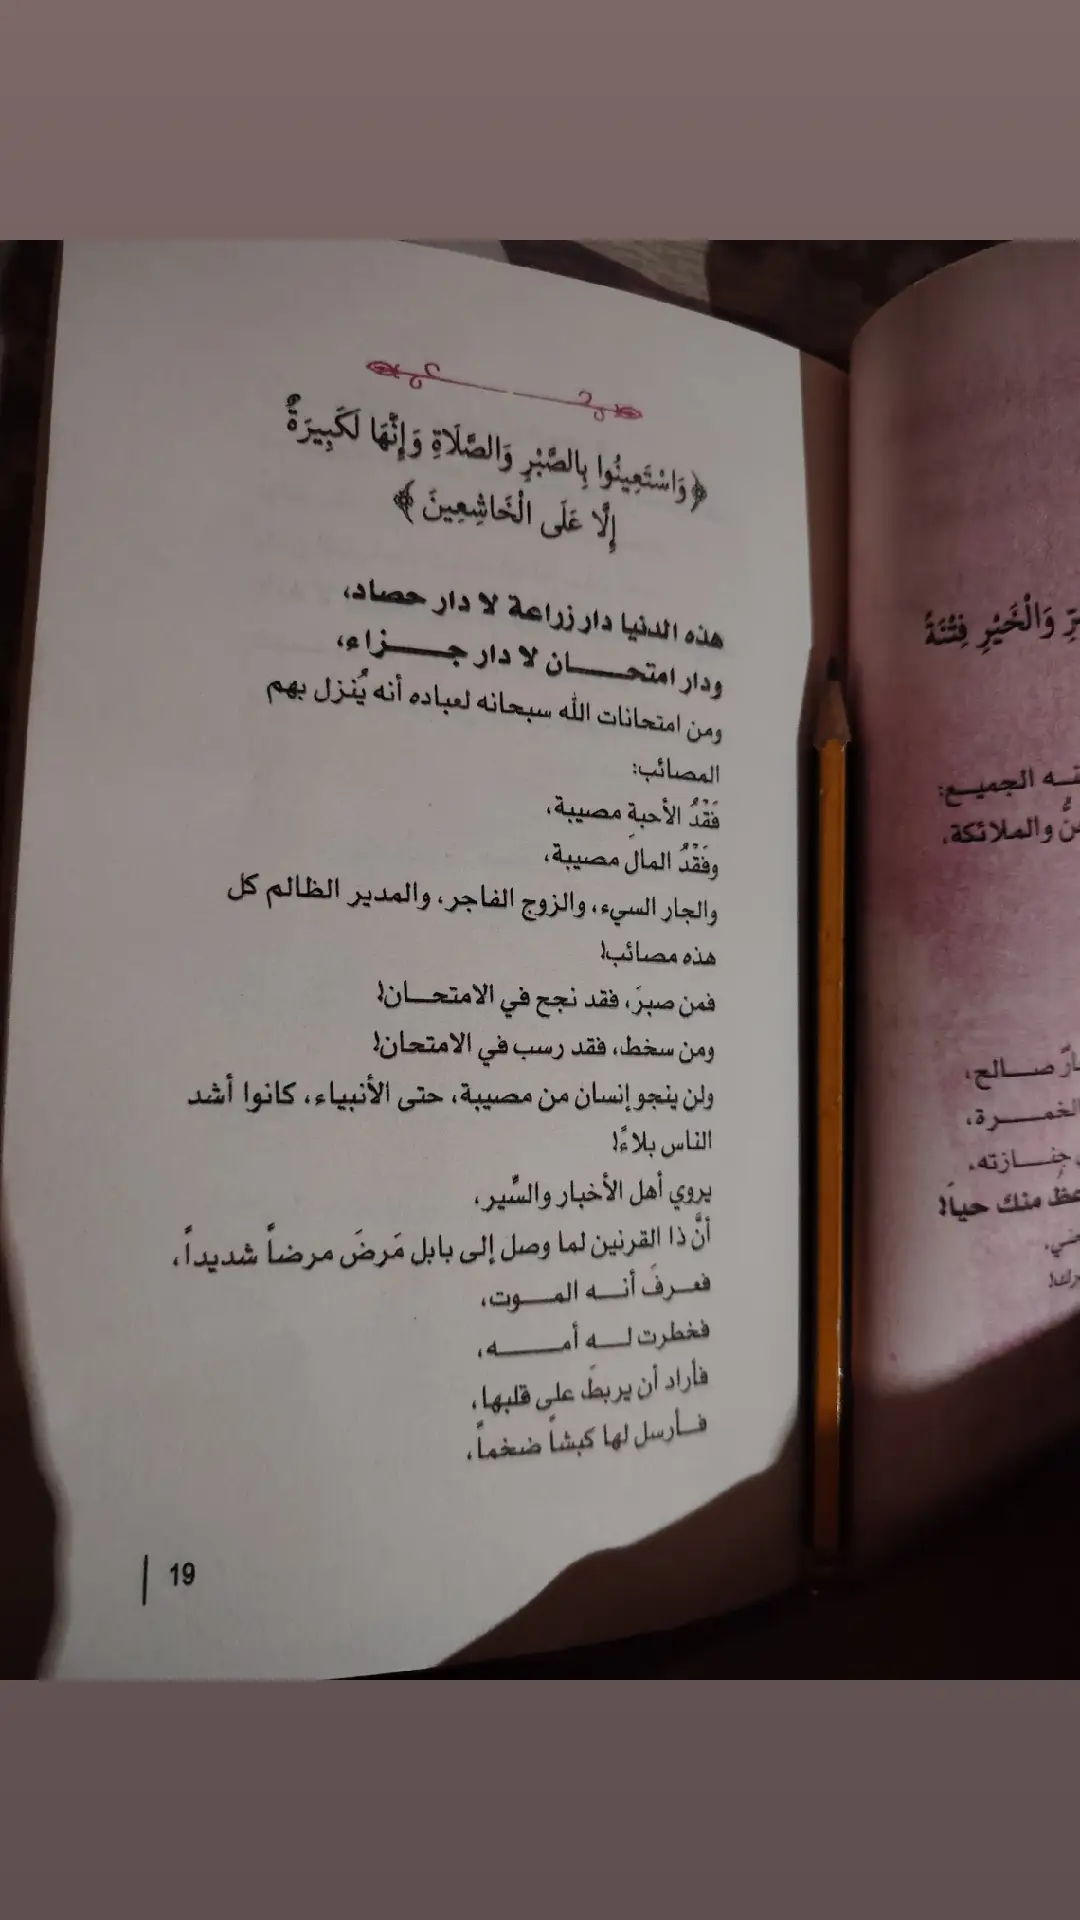 ﴿وَاسْتَعِينُوا بِالصَّبْرِ وَالصَّلَاةِ وَإِنَّهَا لَكَبِيرَةٌ
إِلَّا عَلَى الْخَاشِعِينَ﴾
هذه الدنيا دار زراعة لا دار حصاد،
ودار امتحـــان لا دار جـــزاء،
ومن امتحانات الله سبحانه لعباده أنه يُنزل بهم
المصائب:
فَقْدُ الأحبةِ مصيبة،
وفَقْدُ المال مصيبة،
والجار السيء، والزوج الفاجر، والمدير الظالم كل
هذه مصائب!
فمن صبرَ، فقد نجح في الامتحـان!
ومن سخط، فقد رسب في الامتحان!
ولن ينجو إنسان من مصيبة، حتى الأنبياء، كانوا أشد
الناس بلاءً!
يروي أهل الأخبار والسِّير،
أنَّ ذا القرنين لما وصل إلى بابل مَرضَ مرضاً شديداً،
فعـرفَ أنـــه المــــوت،
فخطرت لـــه أمـــــه،
فأراد أن يربطَ على قلبها،
فــأرسل لها كبشاً ضخماً،
19
وَالْخَيْرِ فِتْنَةً
الجميـــع:
والملائكة،
صـــالح،
الخمـــرة،
جنـــازته،
منك حياً!